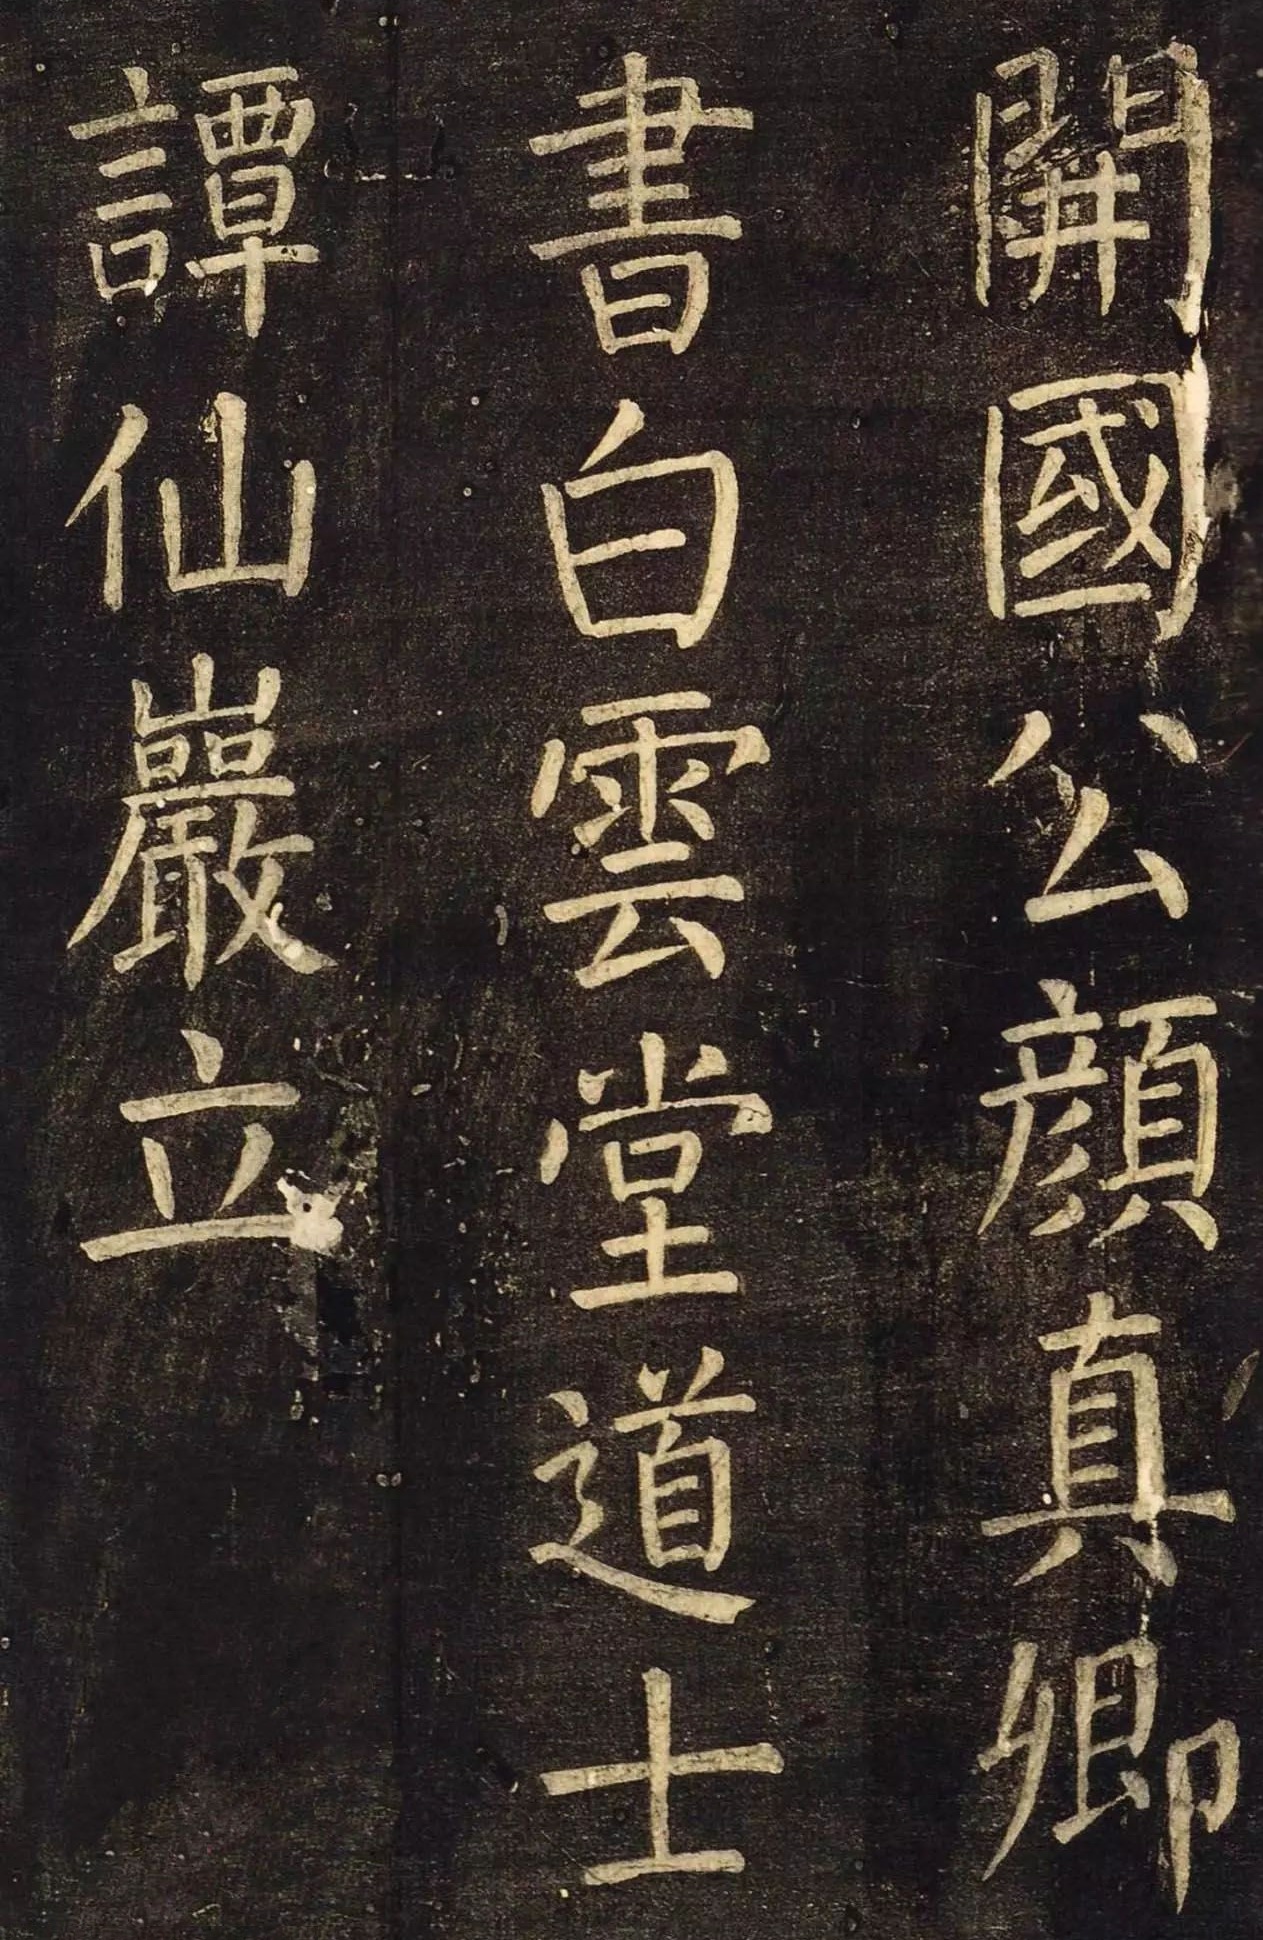 開國公顔真卿
書白雲堂道士
譚仙巖立